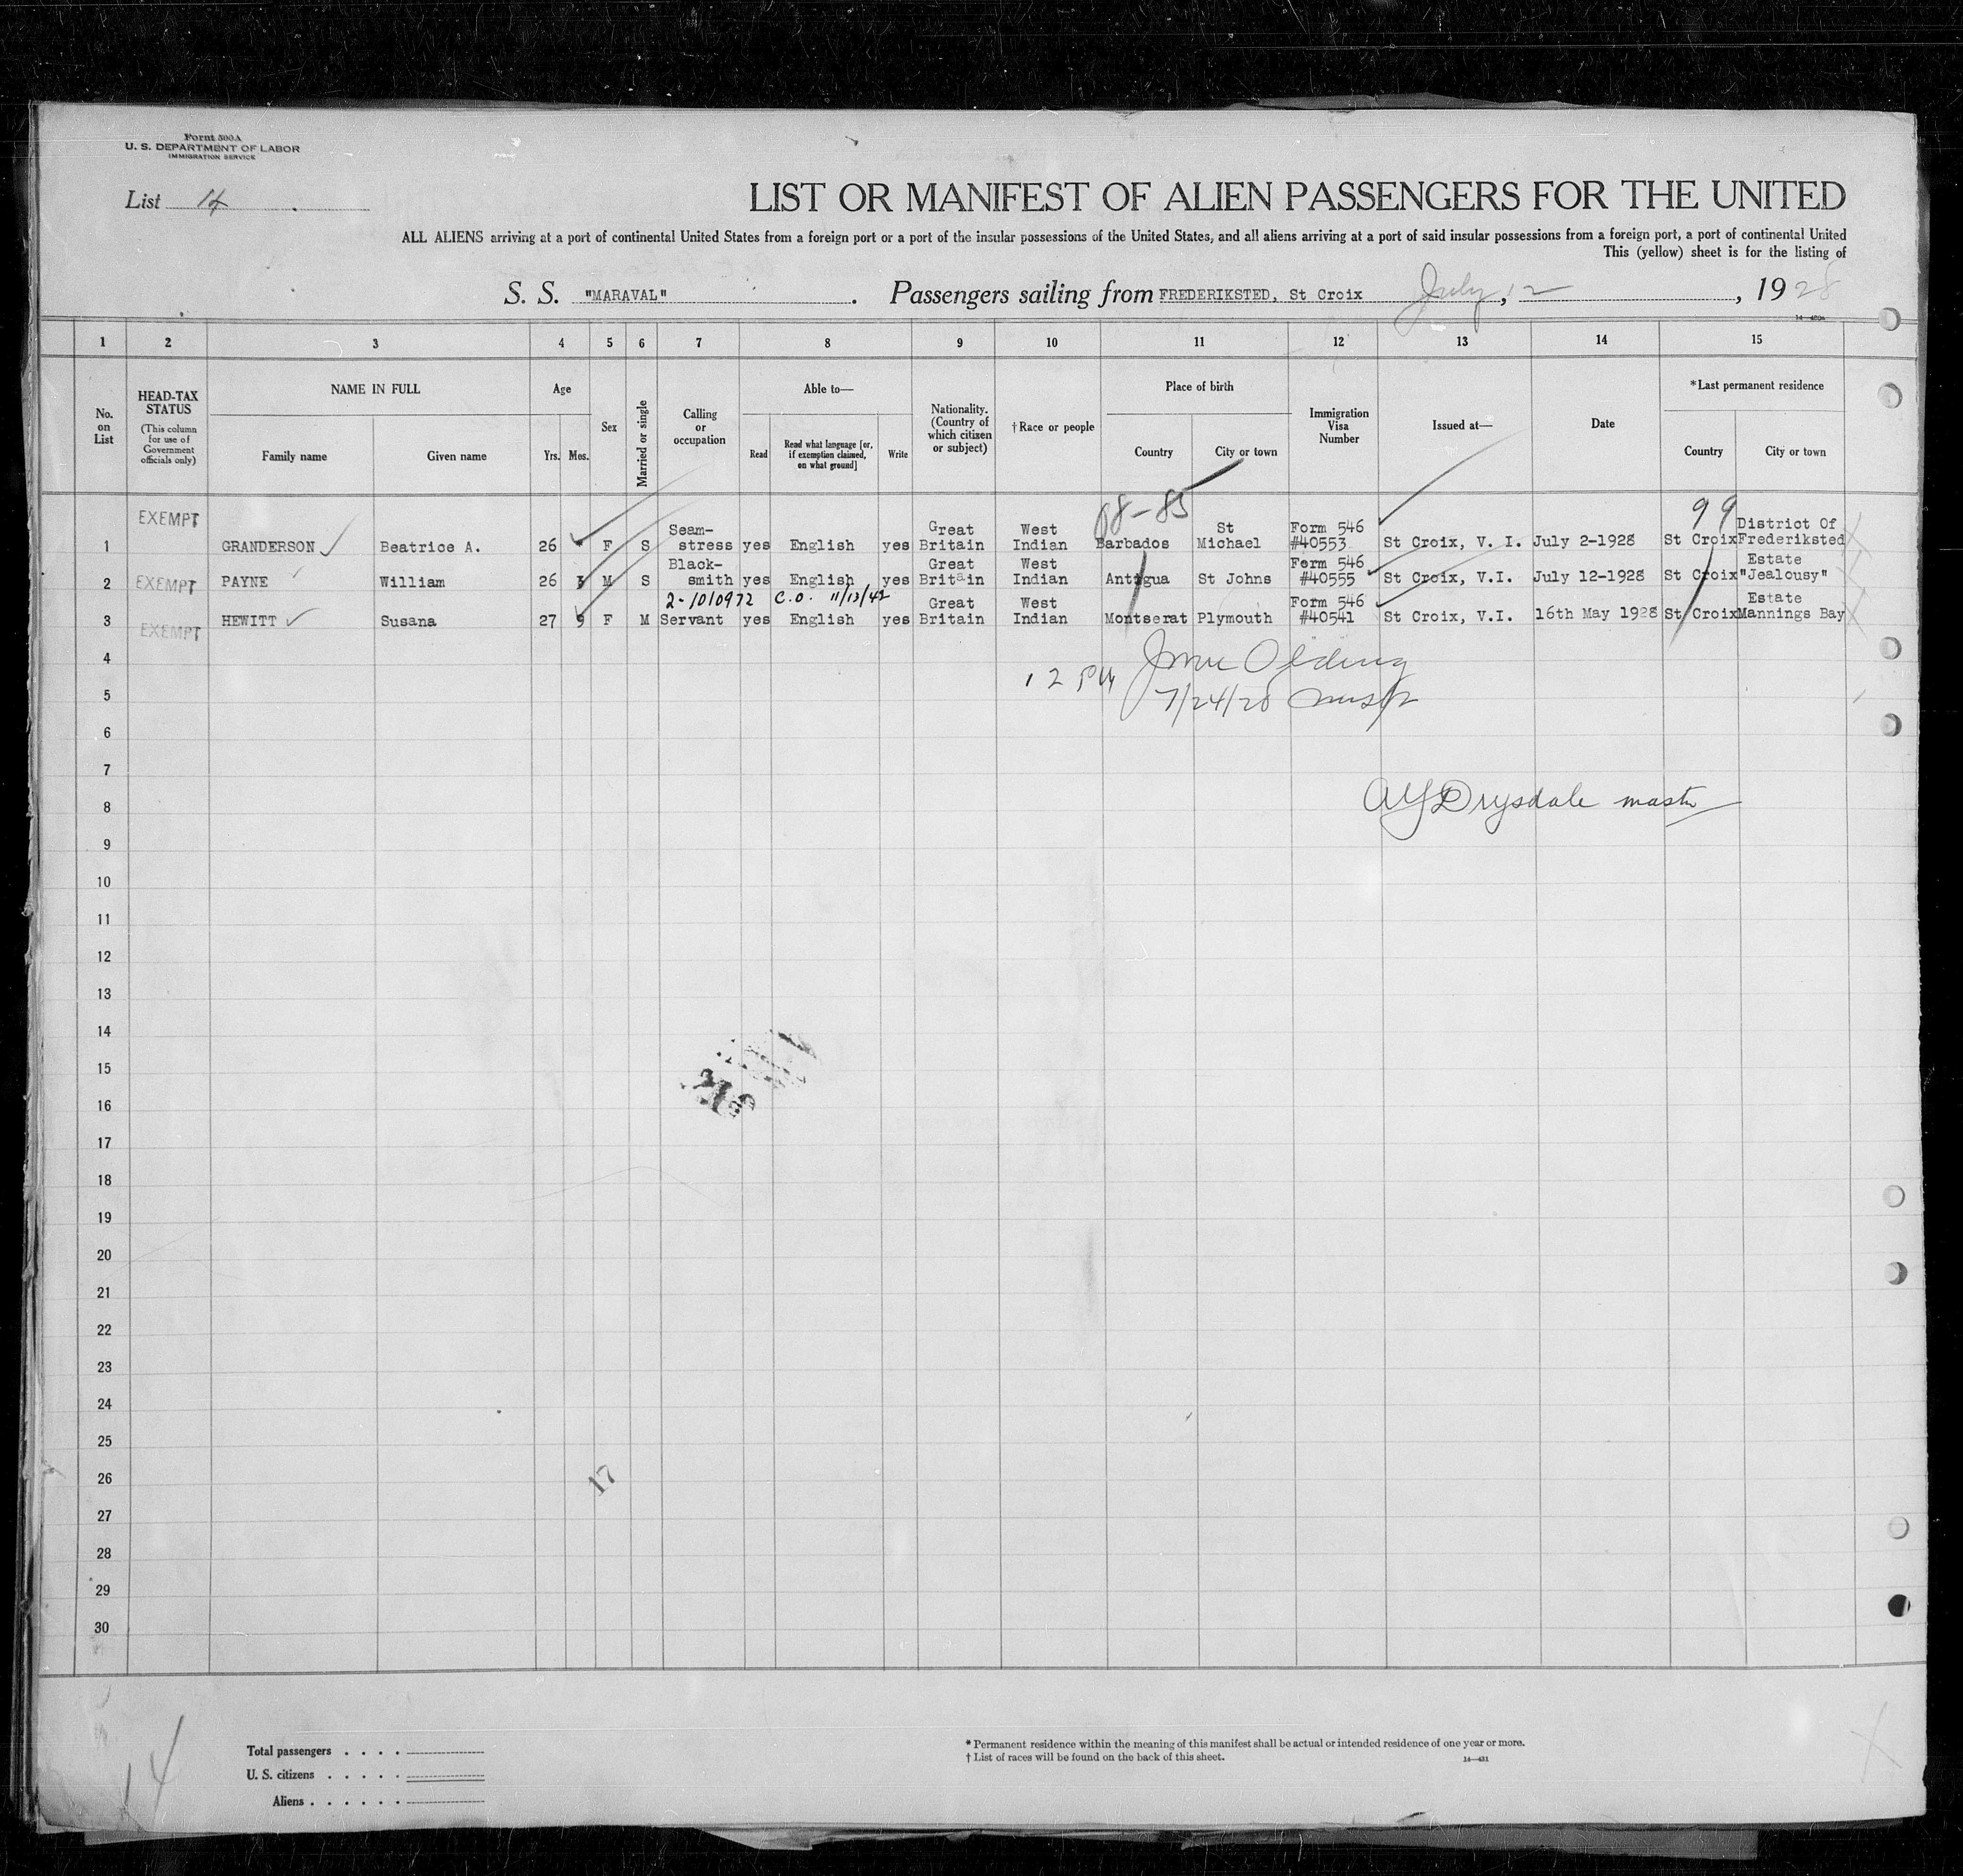 Form 500A
U. S. DEPARTMENT OF LABOR
IMMIGRATION SERVICE
List 14
LIST OR MANIFEST OF ALIEN PASSENGERS FOR THE UNITED
ALL ALIENS arriving at a port of continental United States from a foreign port or a port of the insular possessions of the United States, and all aliens arriving at a port of said insular possessions from a foreign port, a port of continental United
This (yellow) sheet is for the listing of
S. S. "MARAVAL". Passengers sailing from FREDERIKSTED, St Croix July, 12, 1928
1 2 3 4 5 6 7 8 9 10 11 12 13 14 15
No. on List
HEAD-TAX STATUS
(This column for use of Government officials only)
NAME IN FULL
Family name Given name
Age
Yrs. Mos.
Sex
Married or single
Calling or occupation
Able to—
Read Read what language [or, if exemption claimed, on what ground] Write
Nationality. (Country of which citizen or subject)
†Race or people
Place of birth
Country City or town
Immigration Visa Number
Issued at—
Date
*Last permanent residence
Country City or town
88-85 99
1 EXEMPT GRANDERSON Beatrice A. 26 F S Seam-stress yes English yes Great Britain West Indian Barbados St Michael Form 546 #40553 St Croix, V. I. July 2-1928 St Croix District Of Frederiksted
2 EXEMPT PAYNE William 26 3 M S Black-smith yes English yes Great Britain West Indian Antigua St Johns Form 546 #40555 St Croix, V.I. July 12-1928 St Croix Estate "Jealousy"
2-1010972 C.O. 11/13/42
3 EXEMPT HEWITT Susana 27 9 F M Servant yes English yes Great Britain West Indian Montserat Plymouth Form 546 #40541 St Croix, V.I. 16th May 1928 St Croix Estate Mannings Bay
4
12 PM
5
7/24/28
6
7
8
AY Drysdale master
9
10
11
12
13
14
15
16
17
18
19
20
21
22
23
24
25
26
17
27
28
29
30
14
Total passengers . . . .
U. S. citizens . . . . .
Aliens . . . . . .
* Permanent residence within the meaning of this manifest shall be actual or intended residence of one year or more.
† List of races will be found on the back of this sheet.
14—431